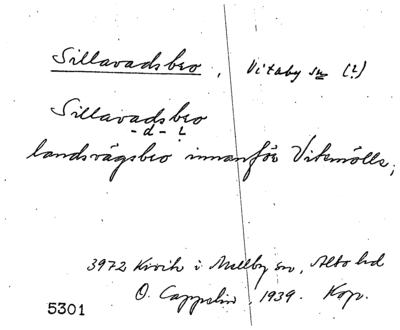 Sillavadsbro, Vitaby sn (?)
Sillavadsbro
-d- ?
landsvägsbro innanför Vitemölla;
3972 Kivik i Mellby sn, Albo hd
O. Cappelin, 1939. Kop.
5301